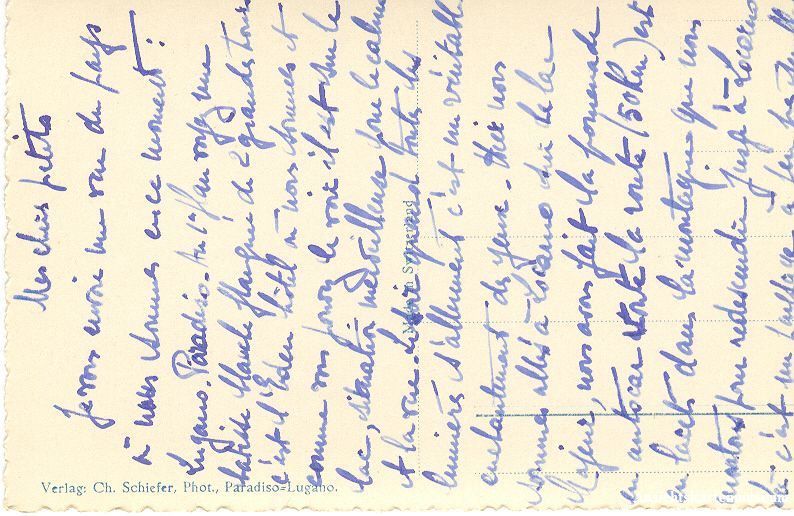 Mes chers petits
Je vous envoie une vue du pays
où nous sommes en ce moment :
Lugano-Paradiso. Au 1er plan vous une
bâtisse blanche flanquée de 2 grandes tours
c'est l'Eden hôtel où nous sommes et
comme vous pouvez le voir il est sur le
lac, situation merveilleuse pour le calme
et la vue. Le soir quand toutes les
lumières s'allument c'est un véritable
enchantement des yeux. Hier nous
sommes allés à Locarno sur le lac
Majeur, nous avons fait la promenade
en autocar toute la route (50 km) est
en lacets dans la montagne que nous
montons pour redescendre jusqu'à Locarno
c'est un
Verlag: Ch. Schiefer, Phot., Paradiso-Lugano.